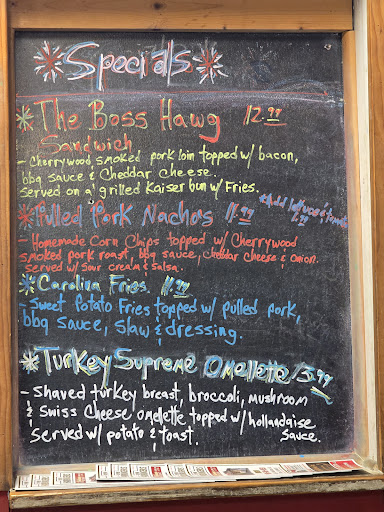 Specials
* The Boss Hawg 12.99
Sandwich
- Cherrywood smoked pork loin topped w/ bacon,
bbq sauce & Cheddar cheese.
Served on a grilled Kaiser bun w/ Fries.
* Pulled Pork Nachos 11.99
- Homemade Corn Chips topped w/ Cherrywood
smoked pork roast, bbq sauce, cheddar cheese & onion.
Served w/ sour cream & salsa.
* Carolina Fries 11.99
- Sweet Potato Fries topped w/ pulled pork,
bbq sauce, slaw & dressing.
* Turkey Supreme Omelette 13.99
- Shaved turkey breast, broccoli, mushroom
& Swiss Cheese omelette topped w/ hollandaise
sauce.
Served w/ potato & toast.